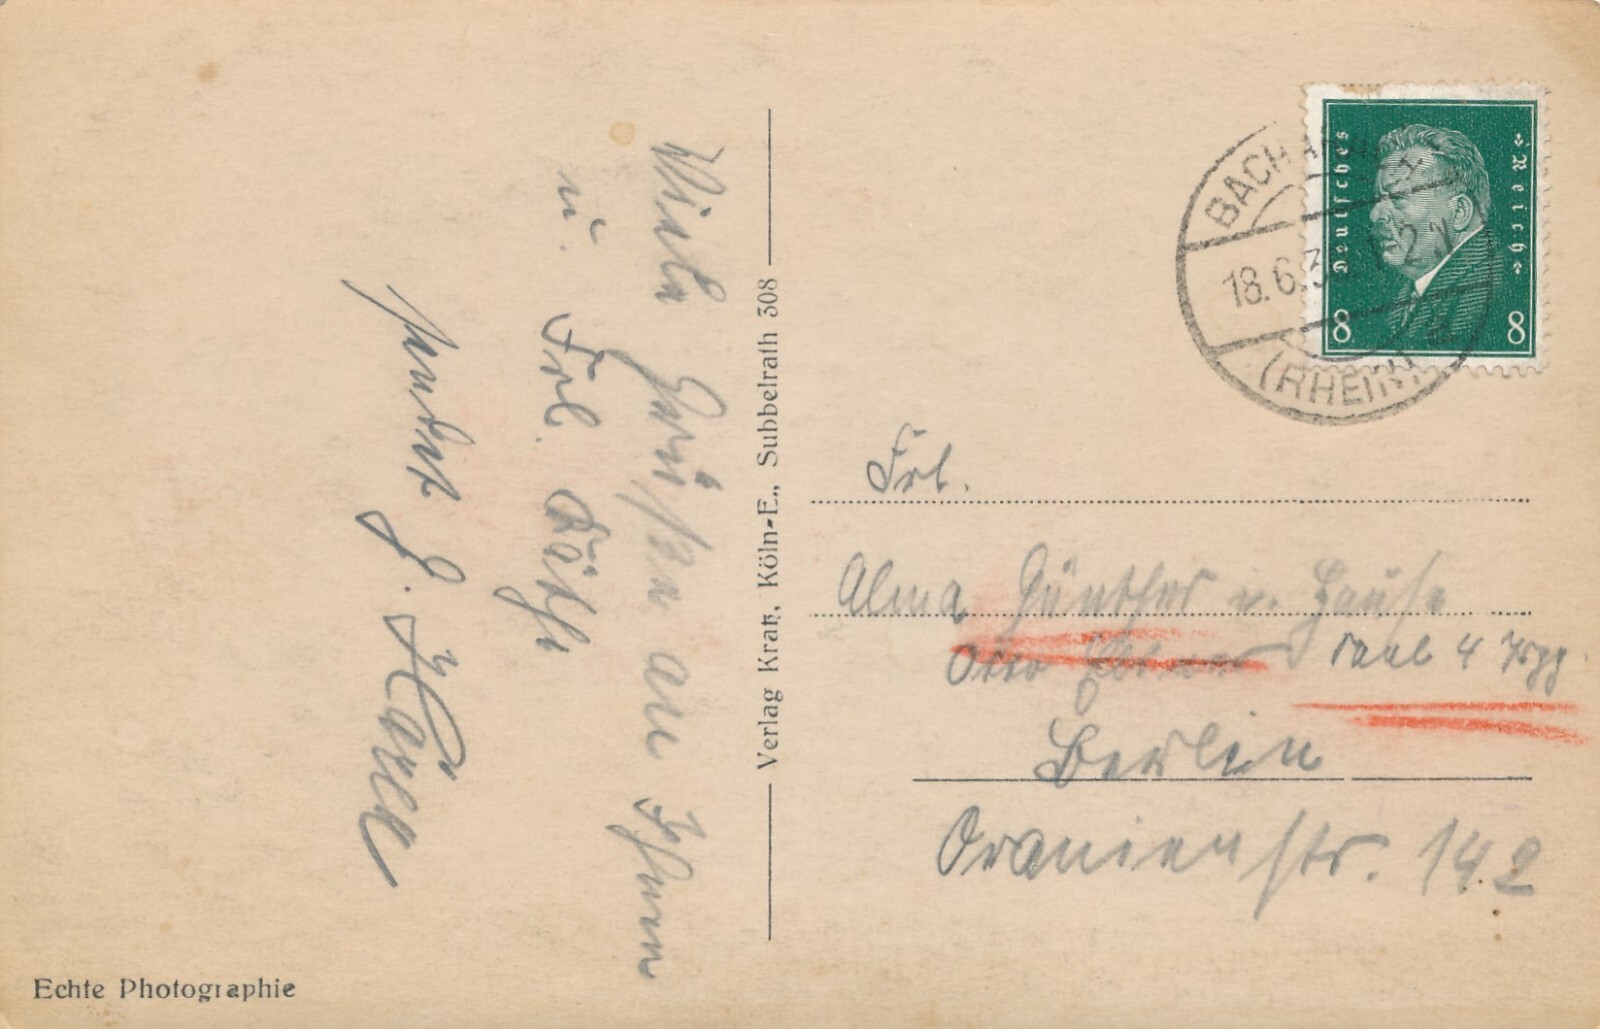 Viele Grüßen an Ihnen
u. Frl. Käthe
sendet
Echte Photographie
Verlag Kratz, Köln-E., Subbelrath 308
Deutsches Reich
8 8
BACHARACH
18.6.3
(RHEIN)
Frl.
Alma Günther u. Hause
Otto
Berlin
Oranienstr. 142